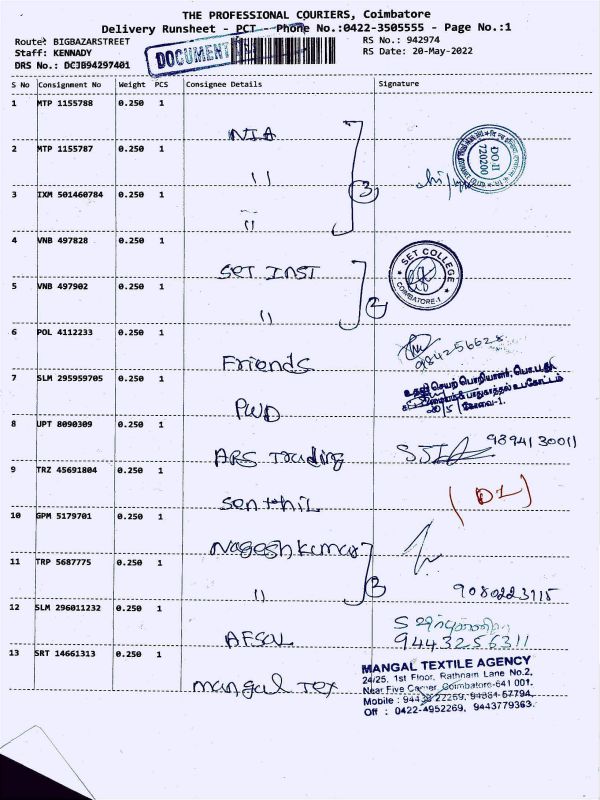 THE PROFESSIONAL COURIERS, Coimbatore
Delivery Runsheet - PCT - Phone No.:0422-3505555 - Page No.:1
Route: BIGBAZARSTREET
RS No.: 942974
Staff: KENNADY
RS Date: 20-May-2022
DRS No.: DCJB94297401
DOCUMENT
S No Consignment No Weight PCS Consignee Details Signature
1 MTP 1155788 0.250 1
NIA
2 MTP 1155787 0.250 1
"
DO.II
720200
3 IXM 501460784 0.250 1
"
3
4 VNB 497828 0.250 1
SET INST
SET COLLEGE
COIMBATORE-1
5 VNB 497902 0.250 1
"
2
6 POL 4112233 0.250 1
Friends
984256628
7 SLM 295959705 0.250 1
PWD
உதவி செயற் பொறியாளர், பொ.ப.து
பாதுகாத்தல் உபகோட்டம்
20/5 கோவை-1.
8 UPT 8090309 0.250 1
ARS Trading
9894130011
9 TRZ 45691804 0.250 1
Senthil
(DL)
10 GPM 5179701 0.250 1
Nageshkumar
11 TRP 5687775 0.250 1
"
2
9080223115
12 SLM 296011232 0.250 1
AFSAL
9443256311
13 SRT 14661313 0.250 1
mangal Tex
MANGAL TEXTILE AGENCY
24/25, 1st Floor, Rathnam Lane No.2,
Near Five Corner Coimbatore-641 001.
Mobile : 94439 22269, 94884 57794,
Off : 0422-4952269, 9443779363.